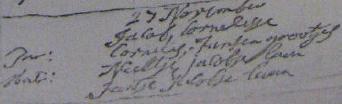 27 November
Jacob, Cornelisse
Par: Cornelis Jansen grootjes
Neeltje Jacobse
Mat: Jacobse